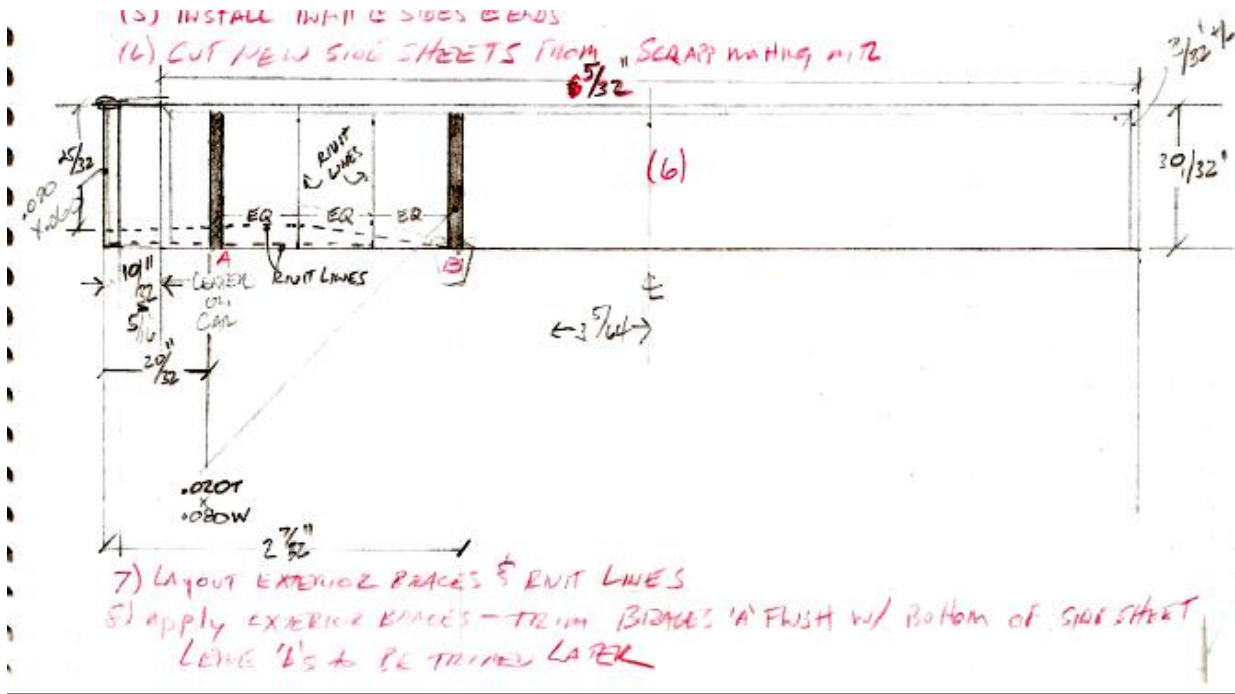 (5) INSTALL SIDES & ENDS
(6) CUT NEW SIDE SHEETS FROM SCRAPP
6 5/32"
25/32
RIVIT LINES
(6)
30/32"
.020
X.060
EQ EQ EQ
A
RIVIT LINES
B
10/32"
5/16
CENTER
CAR
℄
3 5/64
20/32"
.020T
X
.080W
2 7/32"
7) LAYOUT EXTERIOR BRACES & RIVIT LINES
8) APPLY EXTERIOR BRACES - TRIM BRACES 'A' FLUSH W/ BOTTOM OF SIDE SHEET
LEAVE 'B'S TO BE TRIMED LATER